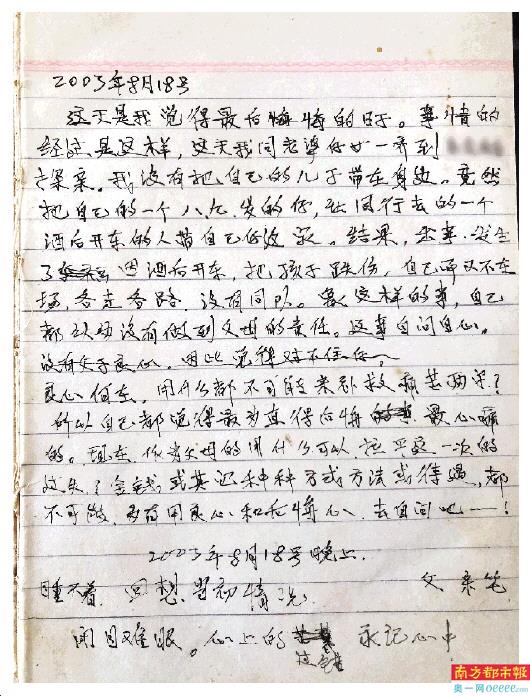 2005年8月18号
这天是我觉得最后悔悔的日子。事情的
经过是这样，这天我同老婆仔女一齐到
探亲。我没有把自己的儿子带在身边。竟然
把自己的一个八九岁的仔，让同行去的一个
酒后开车的人带自己仔返家。结果，出事发生
了 因酒后开车，把孩子跌伤，自己再又不在
场，各走各路，没有同队。象这样的事，自己
都认为没有做到父母的责任。这事自问自心。
没有 良心，因此觉得对不住仔，
良心何在。用什么都不可能 救痛苦两字？
所以自己都觉得最为真得后悔的 最心痛
的。现在，作为父母的用什么可以 平这一次的
过失？金钱或其他种种方式方法或待遇，都
不可能，只有用良心和忏悔心，去自问吧——！
2005年8月18号晚上
睡不着，回想当初情况 父亲笔
闭目难眠。心上的 永记心中
南方都市报
奥一网oeeee.com